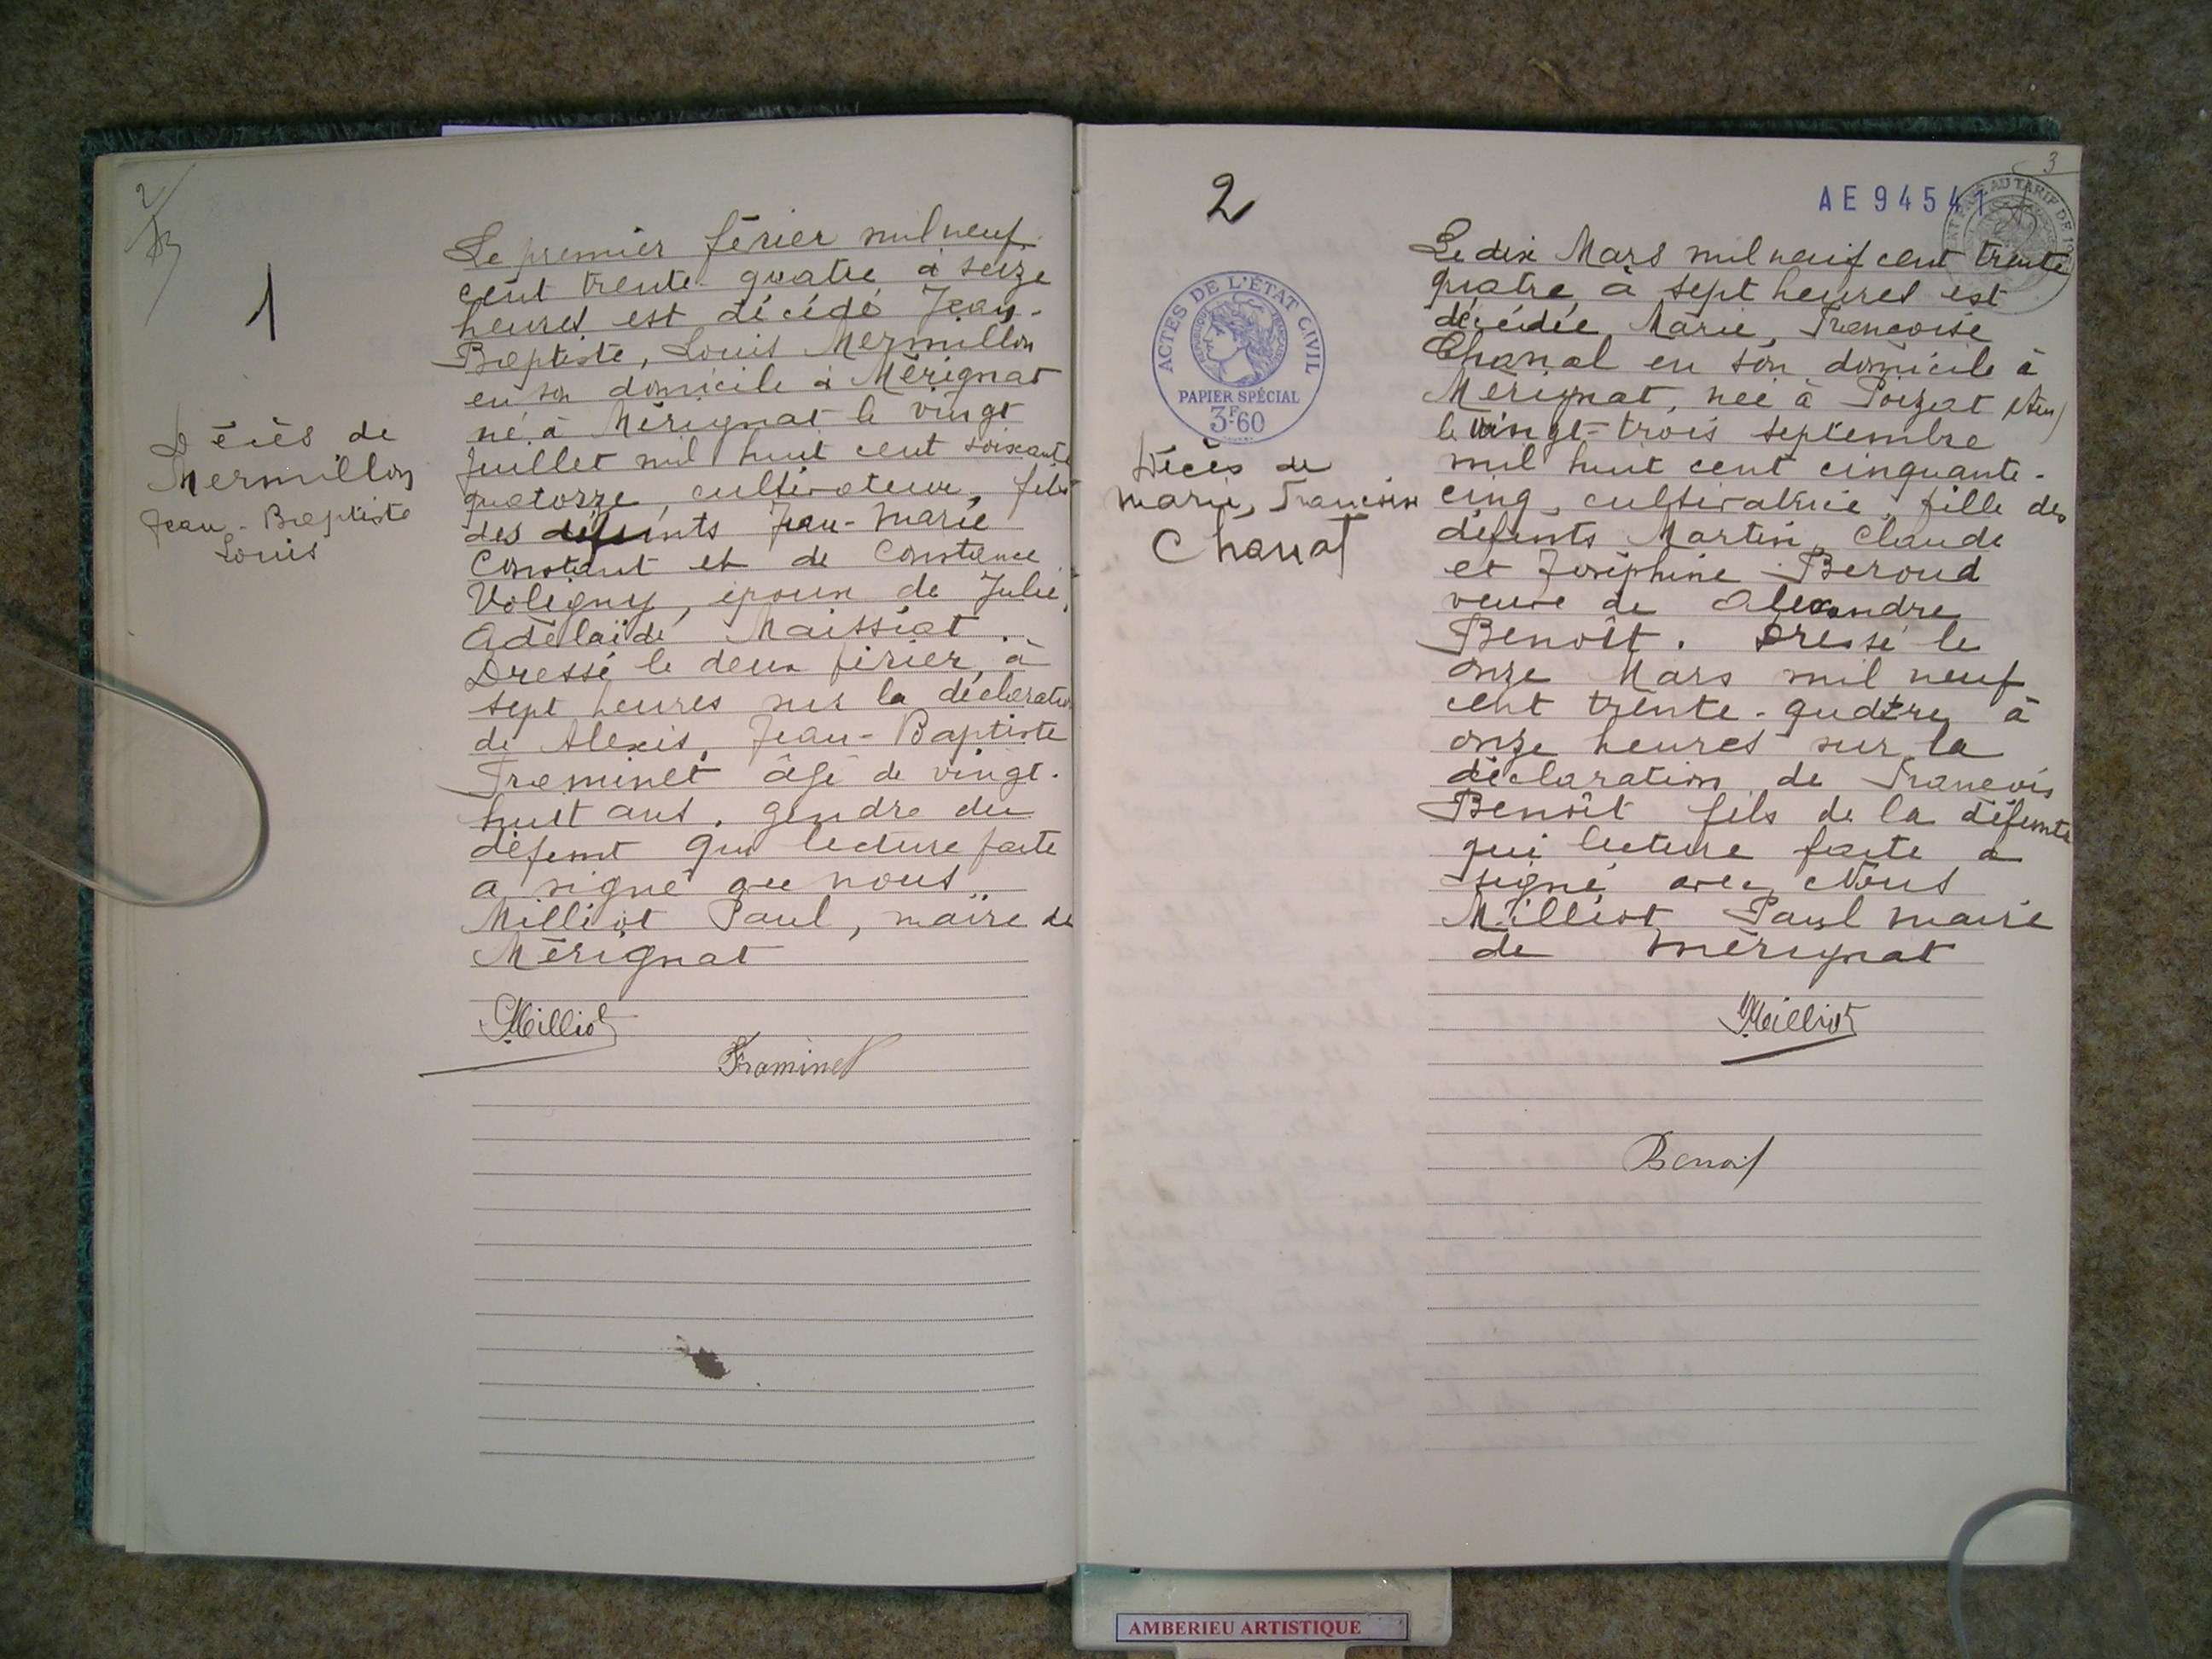 2
1
Décès de
Mermillon
Jean-Baptiste
Louis
Le premier février mil neuf
cent trente-quatre à seize
heures est décédé Jean-
Baptiste, Louis Mermillon
en son domicile à Mérignat
né à Mérignat le vingt
juillet mil huit cent soixante
quatorze, cultivateur, fils
des défunts Jean-Marie
Constant et de Constance
Voligny, époux de Julie,
Adélaïde Maissiat.
Dressé le deux février, à
sept heures sur la déclaration
de Alexis, Jean-Baptiste
Traminet âgé de vingt-
huit ans, gendre du
défunt qui lecture faite
a signé avec nous
Milliat Paul, maire de
Mérignat
Milliat
Framinet
3
2
AE 94541
ACTES DE L'ÉTAT CIVIL
PAPIER SPÉCIAL
3F60
Décès de
Marie, Francoise
Chanal
Le dix Mars mil neuf cent trente
quatre, à sept heures est
décédée, Marie, Francoise
Chanal en son domicile à
Mérignat, née à Poizat (Ain)
le vingt-trois septembre
mil huit cent cinquante-
cinq, cultivatrice, fille des
défunts Martin, Claude
et Joséphine Beroud
veuve de Alexandre
Benoît. Dressé le
onze Mars mil neuf
cent trente-quatre, à
onze heures sur la
déclaration de Francois
Benoît fils de la défunte
qui lecture faite a
signé avec Nous
Milliat Paul maire
de Mérignat
Milliat
Benoit
AMBERIEU ARTISTIQUE